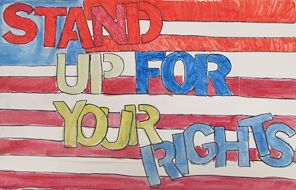 STAND
UP FOR
YOUR
RIGHTS